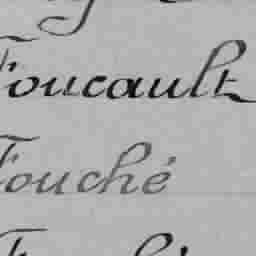 Foucault
Fouché